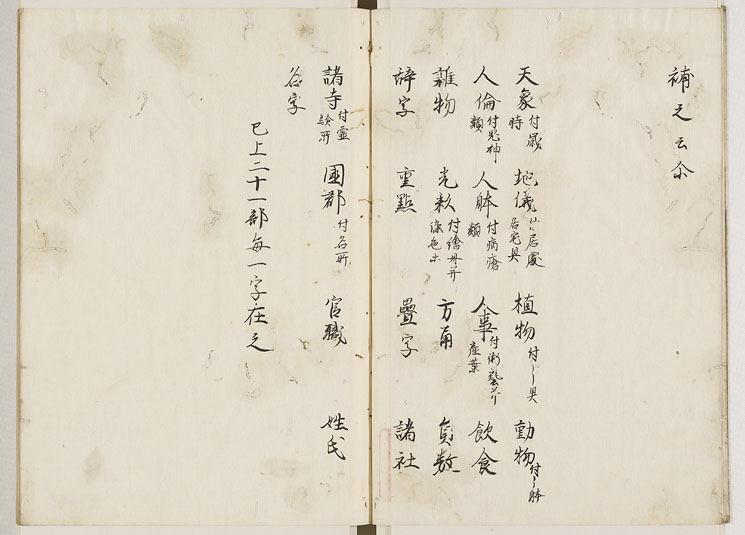 補之云尒
天象付歳時 地儀付居處居宅具 植物付〻具 動物付〻躰
人倫付鬼神類 人躰付病瘡類 人事付術藝并産業 飲食
雜物 光彩付繪丹并染色ホ 方角 員數
辞字 重點 疊字 諸社
諸寺付霊驗所 國郡付名所 官職 姓氏
名字
已上二十一部毎一字在之